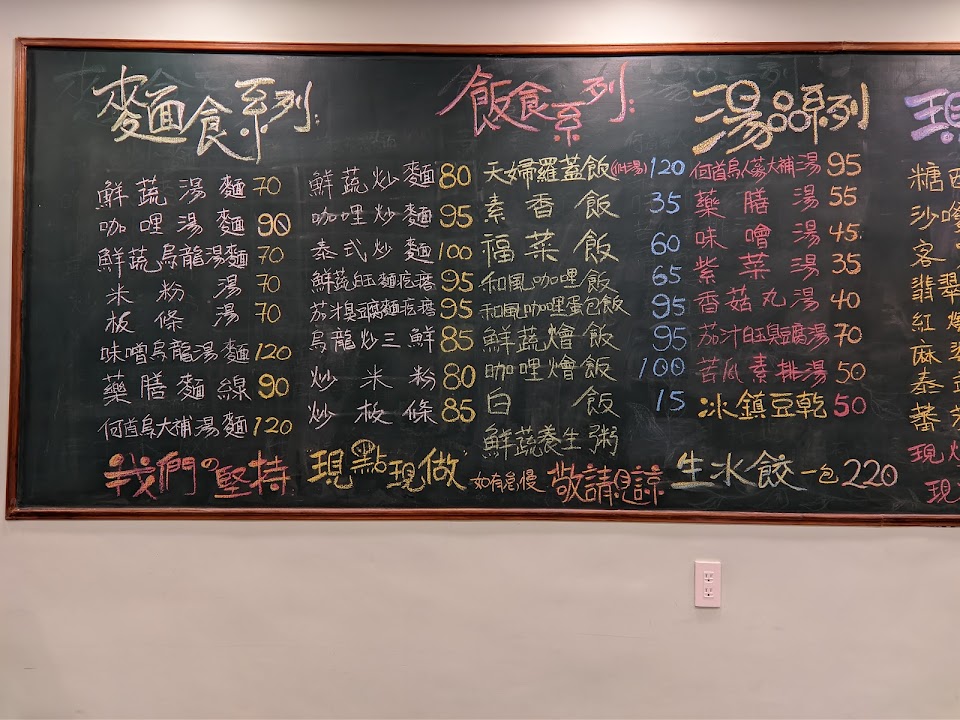 麵食系列:
鮮蔬湯麵 70
咖哩湯麵 90
鮮蔬烏龍湯麵 70
米粉湯 70
板條湯 70
味噌烏龍湯麵 120
藥膳麵線 90
何首烏大補湯麵 120
鮮蔬炒麵 80
咖哩炒麵 95
泰式炒麵 100
鮮蔬白玉麵疙瘩 95
茄汁臭豆腐麵疙瘩 95
烏龍炒三鮮 85
炒米粉 80
炒板條 85
飯食系列:
天婦羅蓋飯(附湯) 120
素香飯 35
福菜飯 60
和風咖哩飯 65
和風咖哩蛋包飯 95
鮮蔬燴飯 95
咖哩燴飯 100
白飯 15
鮮蔬養生粥
湯品系列
何首烏人蔘大補湯 95
藥膳湯 55
味噌湯 45
紫菜湯 35
香菇丸湯 40
茄汁白玉臭豆腐湯 70
苦瓜素排湯 50
冰鎮豆乾 50
現
糖
沙
客
翡翠
紅
麻
泰
蕃
現炒
現
我們的堅持 現點現做 如有怠慢 敬請見諒 生水餃 一包 220